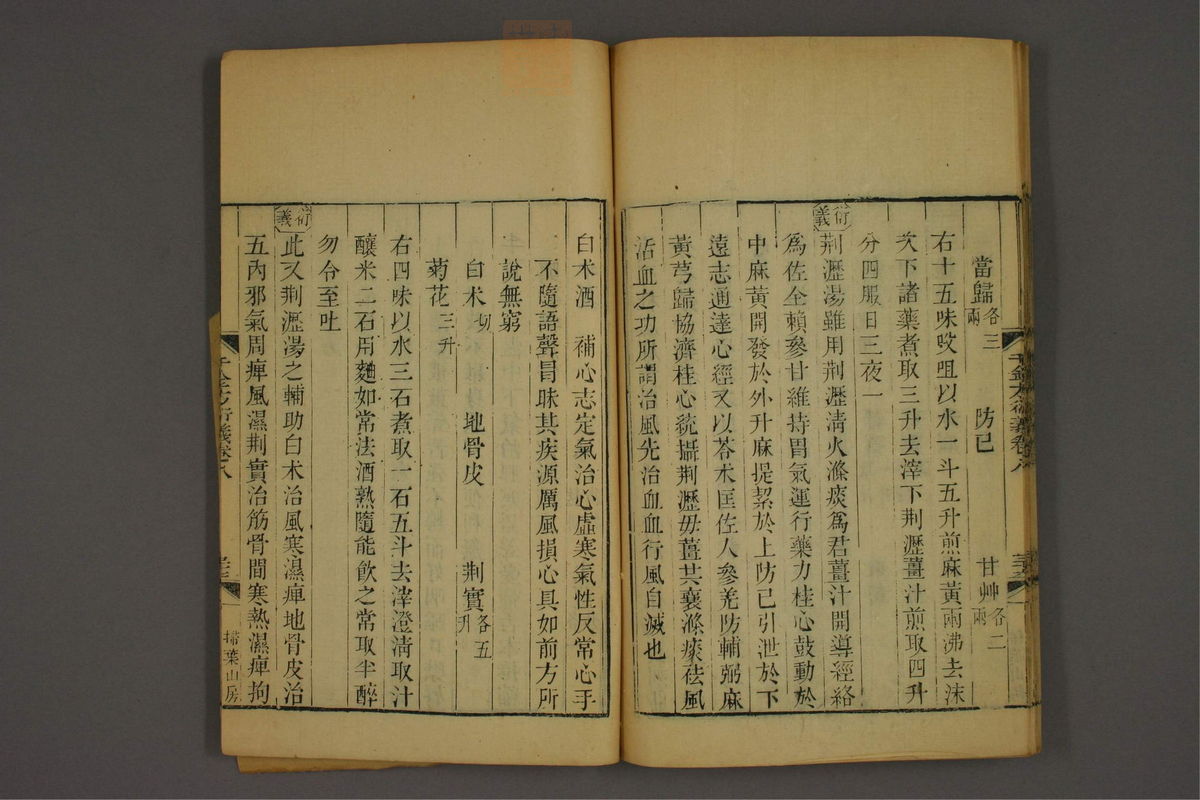 當歸各三兩　防己　甘艸各二兩
右十五味㕮咀以水一斗五升煎麻黃兩沸去沫
次下諸藥煮取三升去滓下荆瀝薑汁煎取四升
分四服日三夜一
衍義
荆瀝湯雖用荆瀝清火滌痰爲君薑汁開導經絡
爲佐全賴參甘維持胃氣運行藥力桂心鼓動於
中麻黃開發於外升麻提挈於上防己引泄於下
遠志通達心經又以苓朮匡佐人參羌防輔弼麻
黃芎歸協濟桂心統攝荆瀝毋薑共襄滌痰祛風
活血之功所謂治風先治血血行風自滅也
白朮酒　補心志定氣治心虛寒氣性反常心手
不隨語聲冒昧其疾源厲風損心具如前方所
說無窮
白朮切　地骨皮　荆實各五升
菊花三升
右四味以水三石煮取一石五斗去滓澄清取汁
釀米二石用麯如常法酒熟隨能飲之常取半醉
勿令至吐
衍義
此又荆瀝湯之輔助白朮治風寒濕痺地骨皮治
五內邪氣周痺風濕荆實治筋骨間寒熱濕痺拘
千金方衍義卷八
掃葉山房